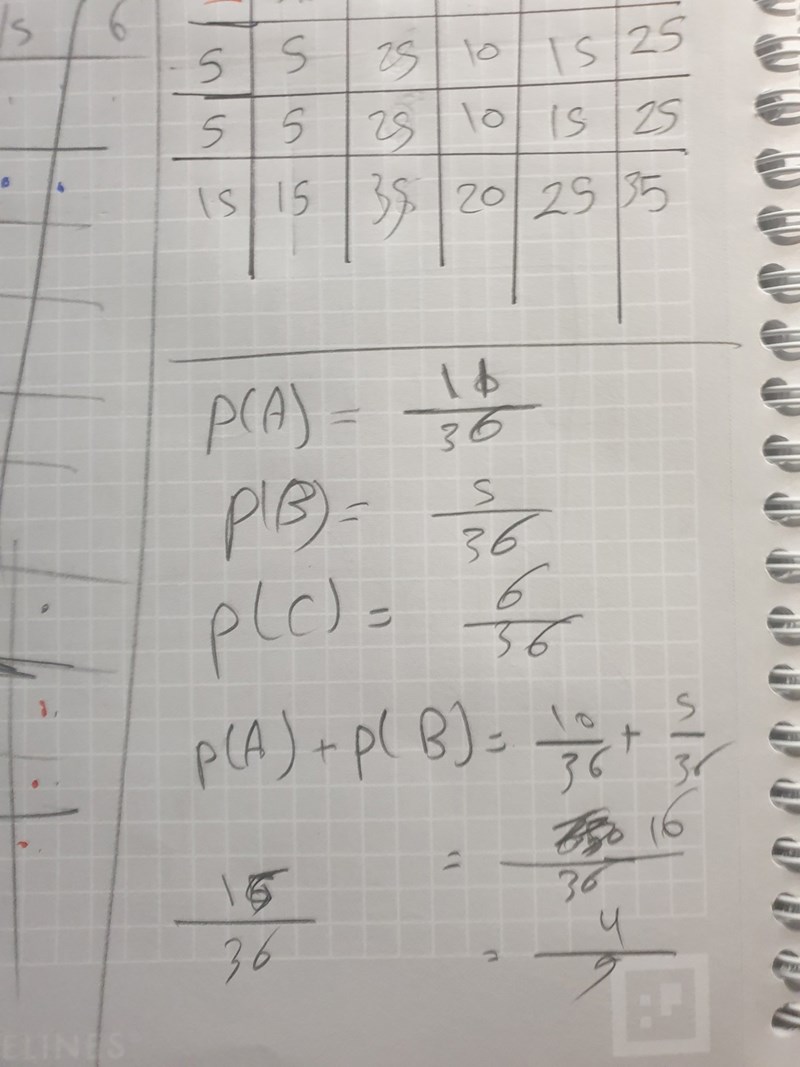 5 6
5 5 25 10 15 25
5 5 25 10 15 25
15 15 35 20 25 35
P(A) = 11/36
P(B) = 5/36
P(C) = 6/36
P(A) + P(B) = 10/36 + 5/36
= 16/36
16/36
= 4/9
ELINES